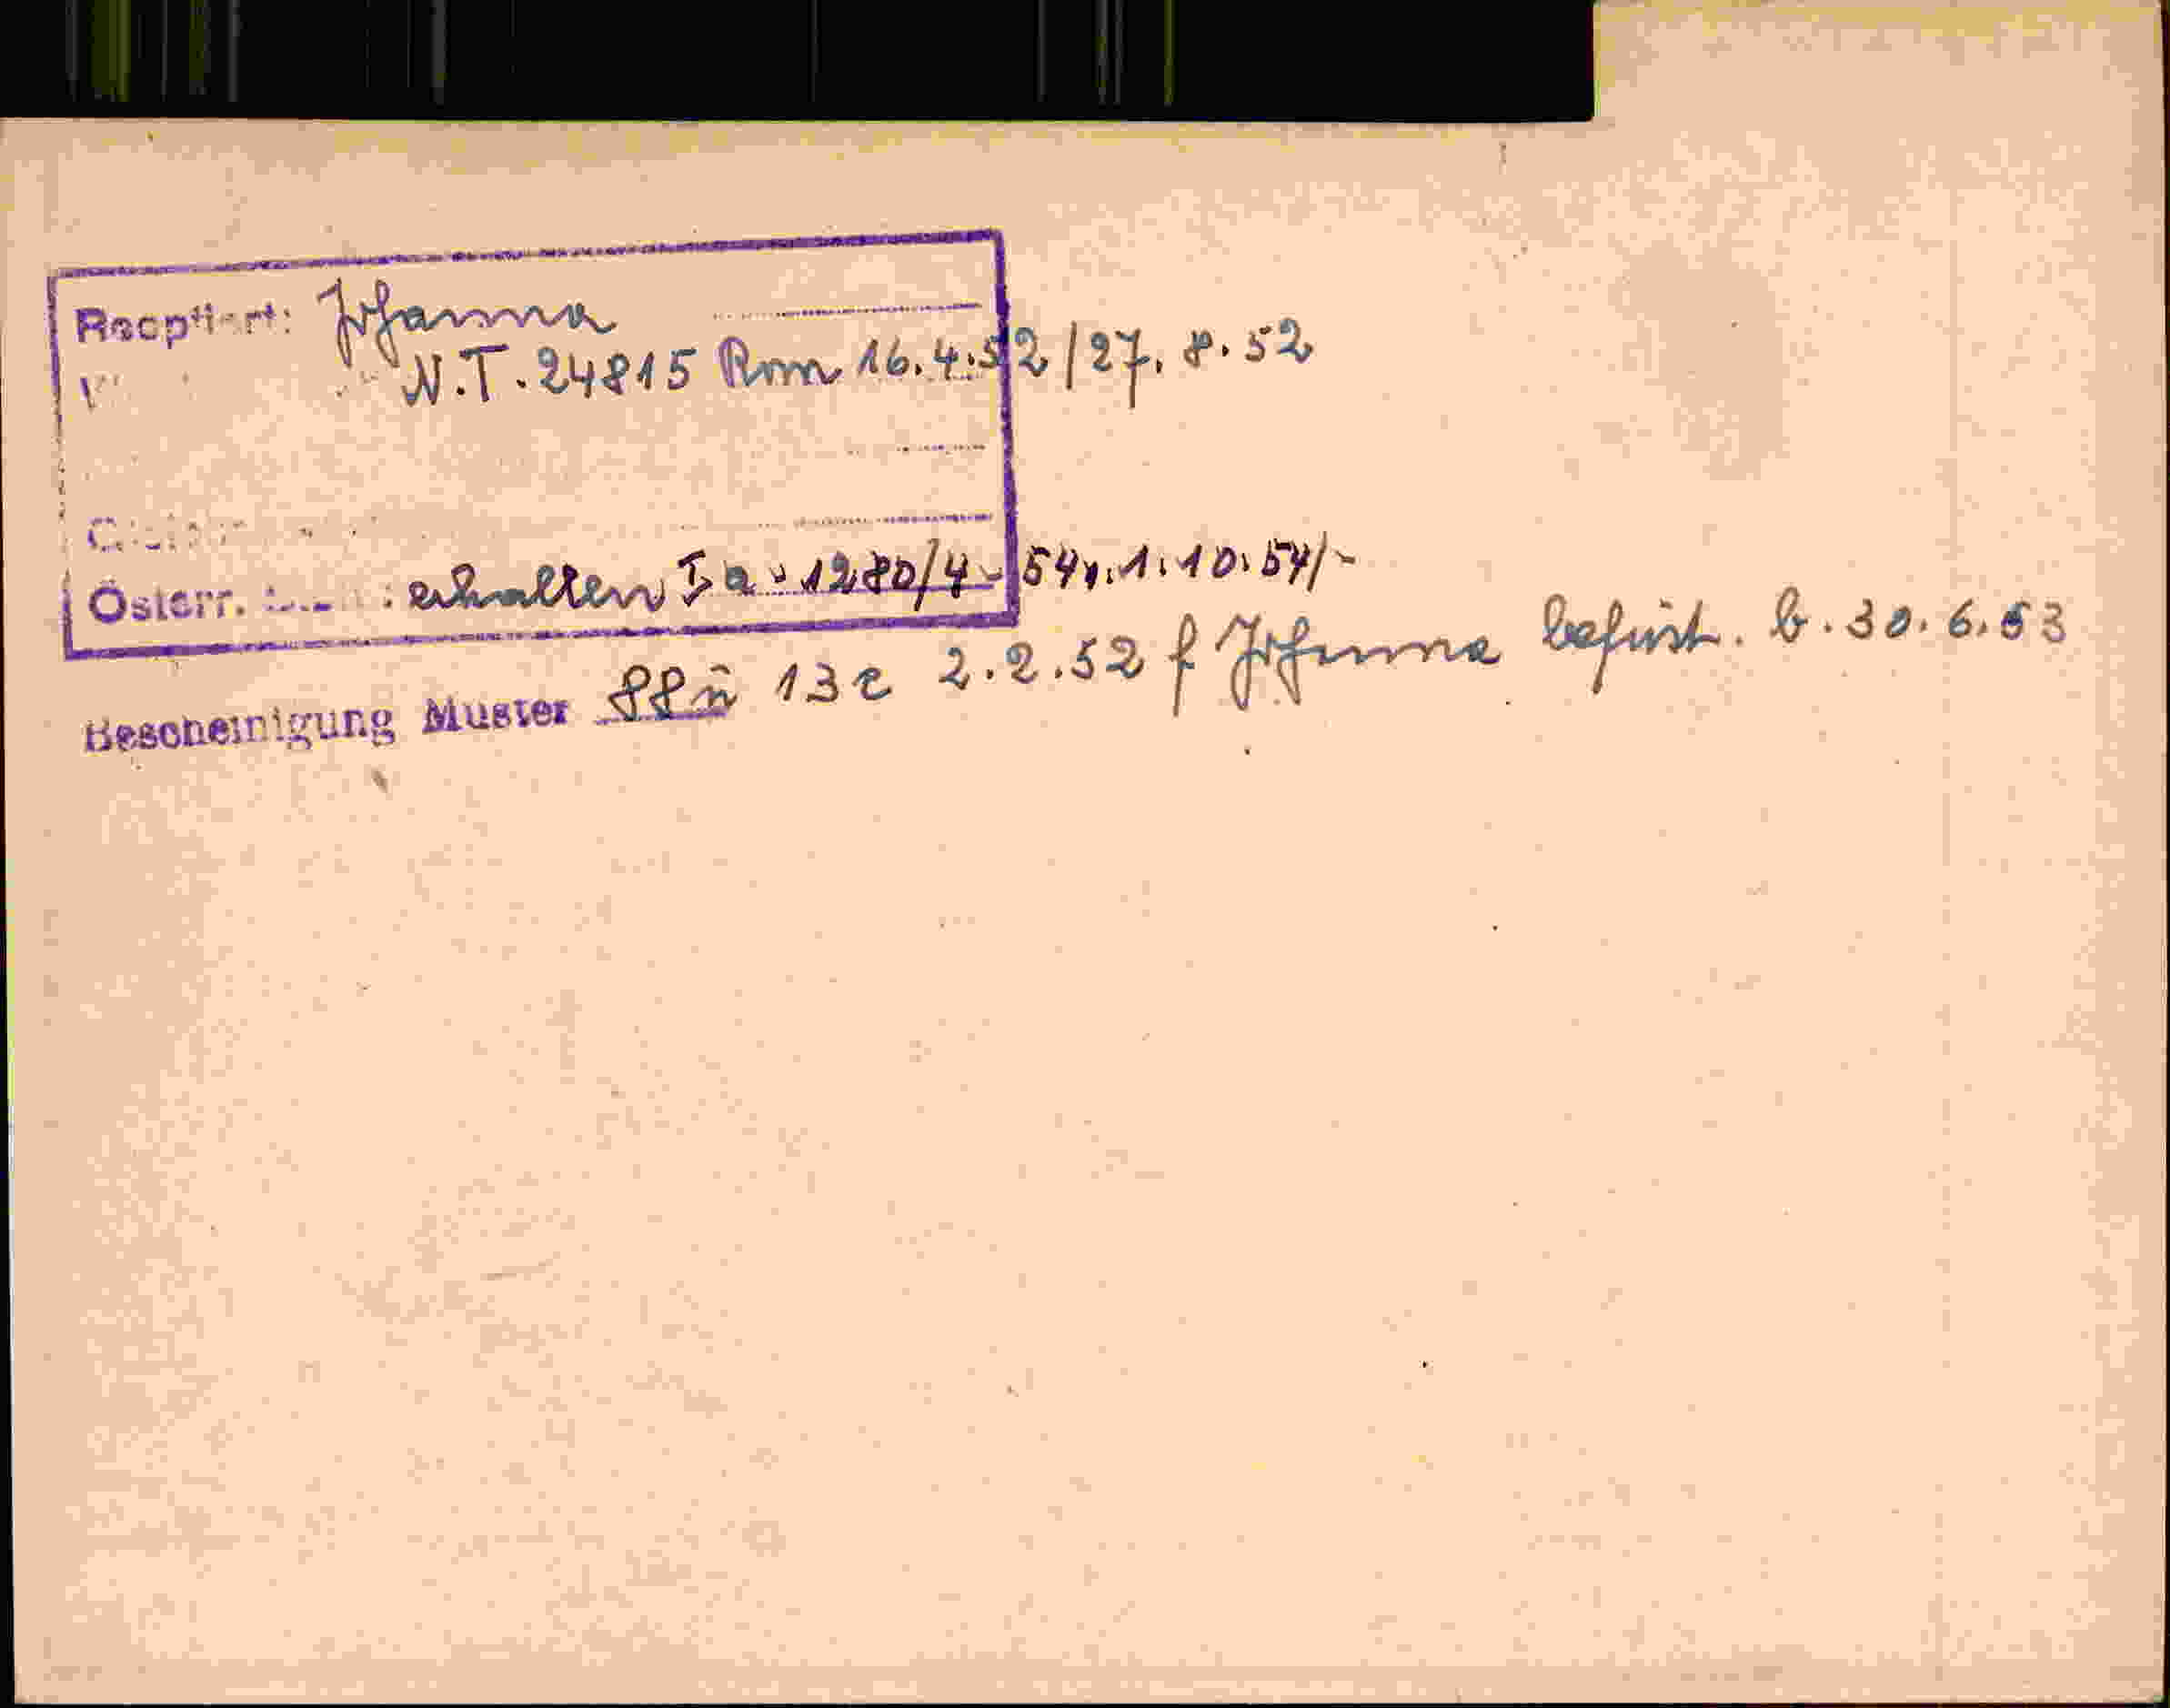 Reoptiert: Johanna
N.T. 24815 Rom 16.4.52/27.8.52
Österr. : erhalten Ia-1280/4-54v.1.10.54/-
Bescheinigung Muster 88 ü 13c 2.2.52 f Johanna befrist. b. 30.6.53